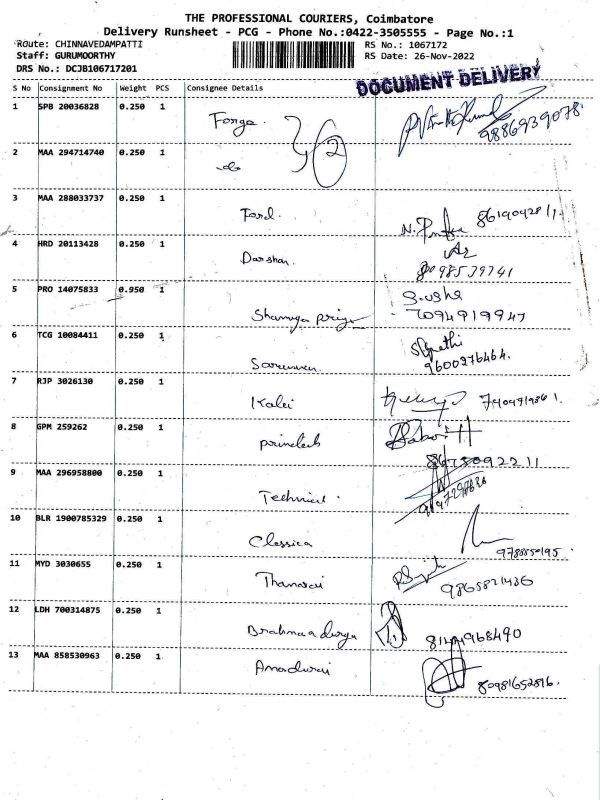 THE PROFESSIONAL COURIERS, Coimbatore
Delivery Runsheet - PCG - Phone No.:0422-3505555 - Page No.:1
Route: CHINNAVEDAMPATTI
RS No.: 1067172
Staff: GURUMOORTHY
RS Date: 26-Nov-2022
DRS No.: DCJB106717201
DOCUMENT DELIVERY
S No Consignment No Weight PCS Consignee Details
1 SPB 20036828 0.250 1 Forge 9886939078
2 MAA 294714740 0.250 1 do 2
3 MAA 288033737 0.250 1 Ford.
4 HRD 20113428 0.250 1 Darshan
5 PRO 14075833 0.950 1 Shanmuga priya S.usha 7094919947
6 TCG 10084411 0.250 1 9600276464.
7 RJP 3026130 0.250 1 Kalai
8 GPM 259262 0.250 1
9 MAA 296958800 0.250 1 Technical.
10 BLR 1900785329 0.250 1 Classica
11 MYD 3030655 0.250 1 9865821436
12 LDH 700314875 0.250 1 Brahmaa durga
13 MAA 858530963 0.250 1 Annadurai 80981652816.